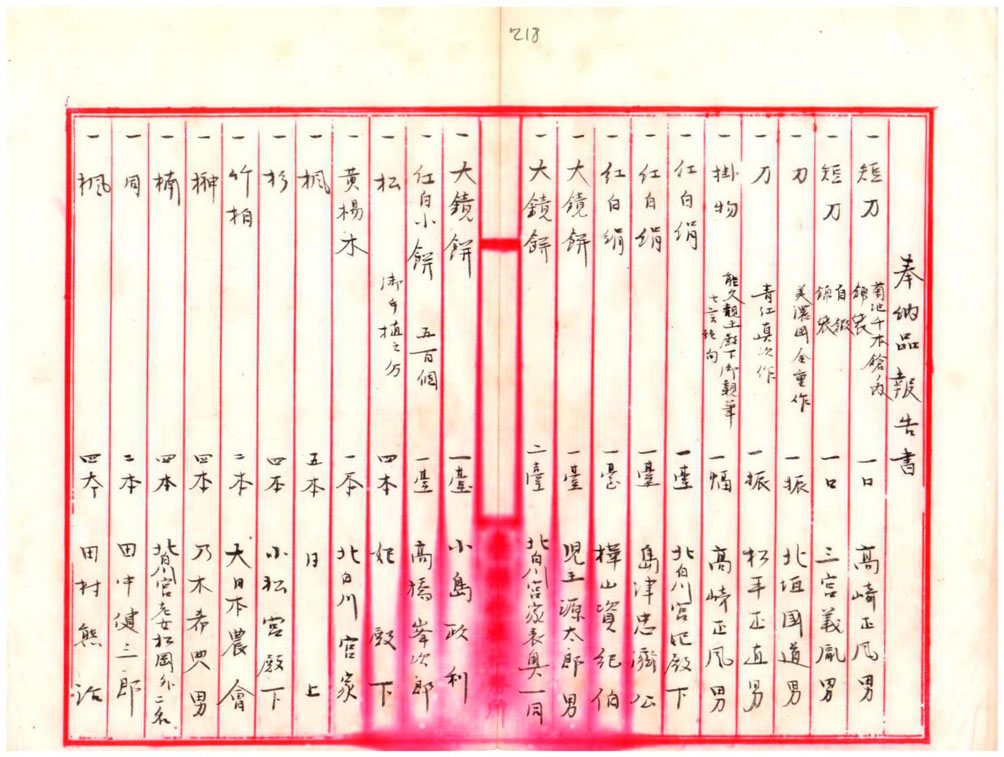 218
奉納品報告書
一 短刀 菊池千本鎗ノ内 錦袋 一口 高崎正風男
一 短刀 白鞘 錦袋 一口 三宮義胤男
一 刀 美濃国金重作 一振 北垣国道男
一 刀 青江真次作 一振 松平正直男
一 掛物 能久親王殿下御親筆 七言絶句 一幅 高崎正風男
一 紅白絹 一臺 北白川宮妃殿下
一 紅白絹 一臺 島津忠濟公
一 紅白絹 一臺 樺山資紀伯
一 大鏡餅 一臺 児玉源太郎男
一 大鏡餅 二臺 北白川宮家表奥一同
一 大鏡餅 一臺 小島政利
一 紅白小餅 五百個 一臺 高橋峯次郎
一 松 御手植之分 四本 妃殿下
一 黄楊木 一本 北白川宮家
一 楓 五本 日上
一 杉 四本 小松宮殿下
一 竹柏 二本 大日本農會
一 榊 四本 乃木希典男
一 楠 四本 北白川宮老女松岡外二名
一 同 二本 田中健三郎
一 楓 四本 田村熊治